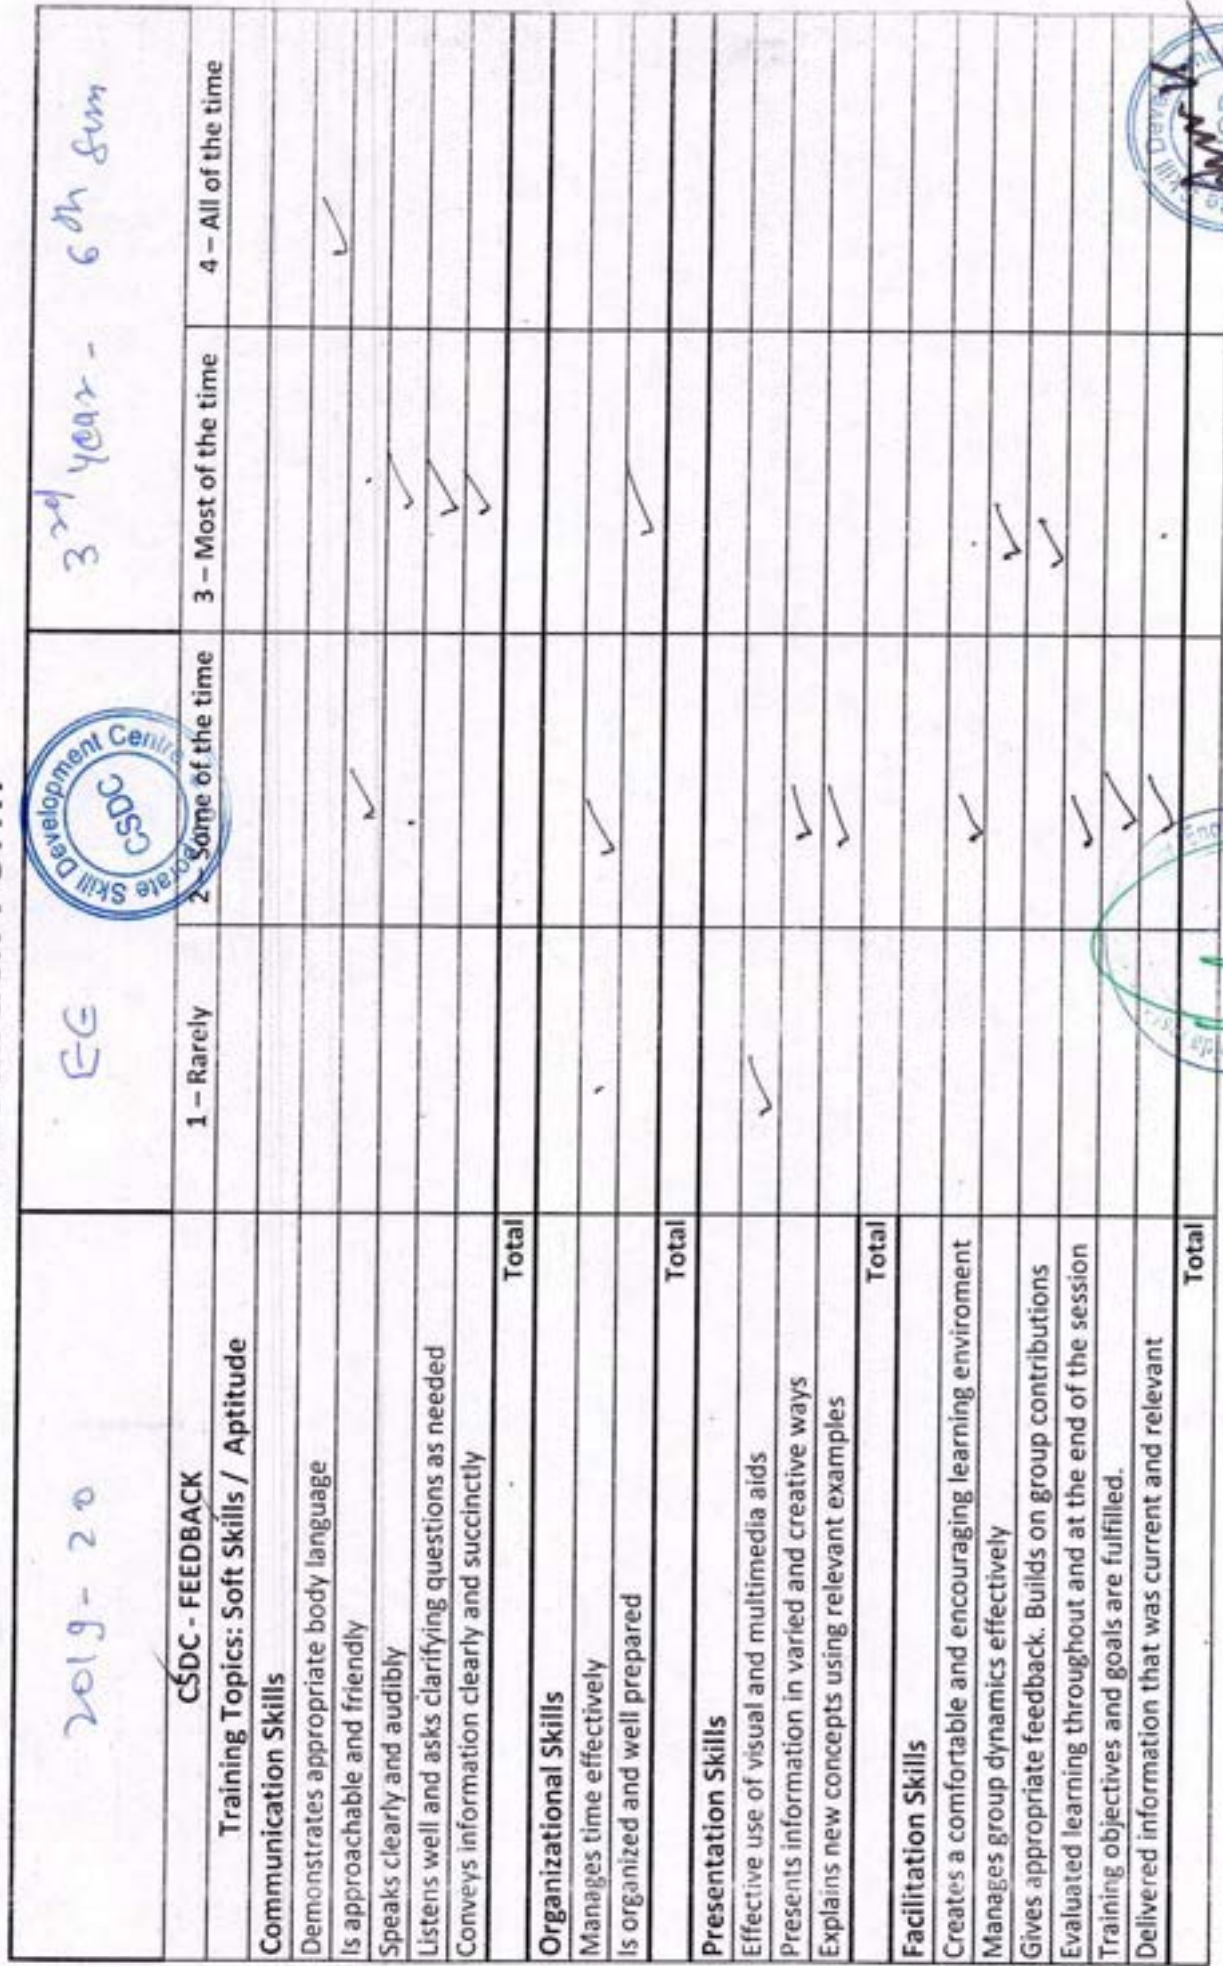 2019-20 EE 3rd year - 6th Sem
Corporate Skill Development Centre
CSDC
CSDC - FEEDBACK 1 – Rarely 2 – Some of the time 3 – Most of the time 4 – All of the time
Training Topics: Soft Skills / Aptitude
Communication Skills
Demonstrates appropriate body language ✓
Is approachable and friendly ✓
Speaks clearly and audibly ✓
Listens well and asks clarifying questions as needed ✓
Conveys information clearly and succinctly ✓
Total
Organizational Skills
Manages time effectively ✓
Is organized and well prepared ✓
Total
Presentation Skills
Effective use of visual and multimedia aids ✓
Presents information in varied and creative ways ✓
Explains new concepts using relevant examples ✓
Total
Facilitation Skills
Creates a comfortable and encouraging learning enviroment ✓
Manages group dynamics effectively ✓
Gives appropriate feedback. Builds on group contributions ✓
Evaluated learning throughout and at the end of the session ✓
Training objectives and goals are fulfilled. ✓
Delivered information that was current and relevant ✓
Total